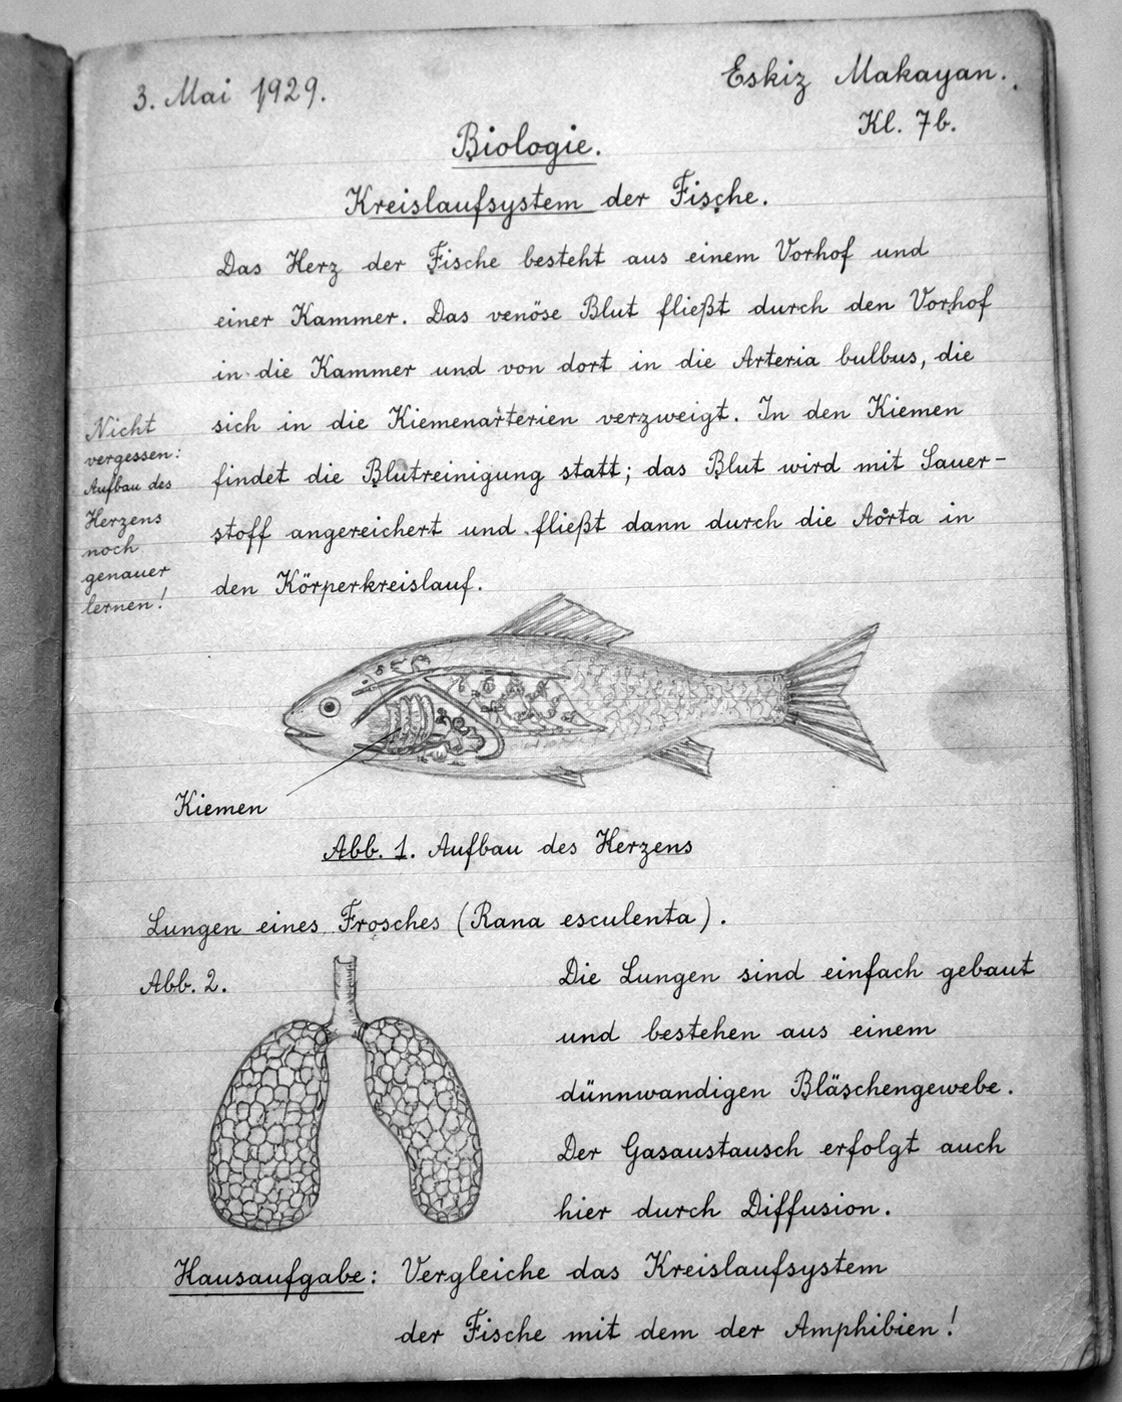 3. Mai 1929.
Eskiz Makayan.
Kl. 7b.
Biologie.
Kreislaufsystem der Fische.
Das Herz der Fische besteht aus einem Vorhof und
einer Kammer. Das venöse Blut fließt durch den Vorhof
in die Kammer und von dort in die Arteria bulbus, die
sich in die Kiemenarterien verzweigt. In den Kiemen
findet die Blutreinigung statt; das Blut wird mit Sauer-
stoff angereichert und fließt dann durch die Aorta in
den Körperkreislauf.
Nicht
vergessen:
Aufbau des
Herzens
noch
genauer
lernen!
Kiemen
Abb. 1. Aufbau des Herzens
Lungen eines Frosches (Rana esculenta).
Abb. 2.
Die Lungen sind einfach gebaut
und bestehen aus einem
dünnwandigen Bläschengewebe.
Der Gasaustausch erfolgt auch
hier durch Diffusion.
Hausaufgabe: Vergleiche das Kreislaufsystem
der Fische mit dem der Amphibien!